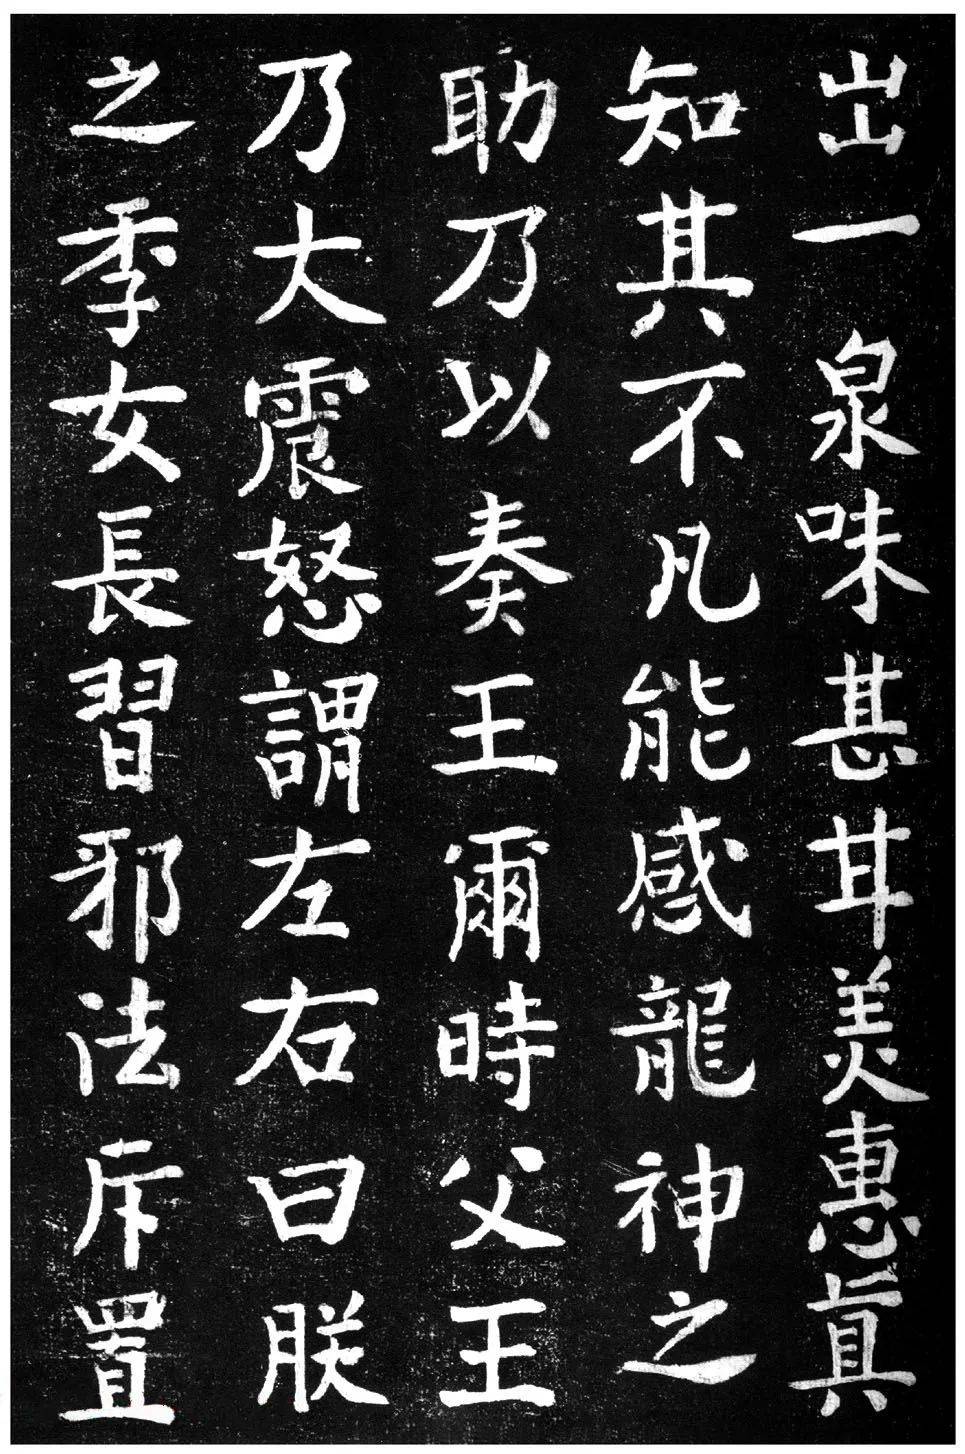 出一泉味甚甘美惠眞
知其不凡能感龍神之
助乃以奏王爾時父王
乃大震怒謂左右曰朕
之季女長習邪法斥置